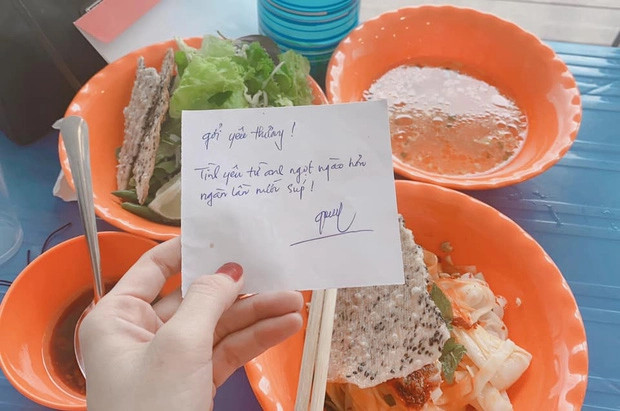 gởi yêu thương !
Tình yêu từ anh ngọt ngào hơn
ngàn lần miếng súp !